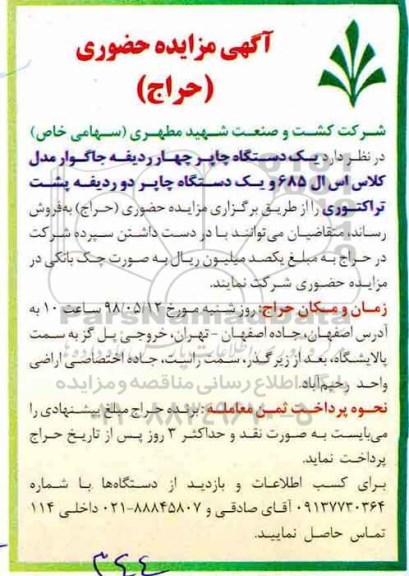 آگهی مزایده حضوری
(حراج)
شرکت کشت و صنعت شهید مطهری (سهامی خاص)
در نظر دارد یک دستگاه چاپر چهار ردیفه جاگوار مدل
کلاس اس ال ۶۸۵ و یک دستگاه چاپر دو ردیفه پشت
تراکتوری را از طریق برگزاری مزایده حضوری (حراج) به‌فروش
رساند. متقاضیان می‌توانند با در دست داشتن سپرده شرکت
در حراج به مبلغ یکصد میلیون ریال به صورت چک بانکی در
مزایده حضوری شرکت نمایند.
زمان و مکان حراج: روز شنبه مورخ ۹۸/۰۵/۱۲ ساعت ۱۰ به
آدرس اصفهان، جاده اصفهان - تهران، خروجی پل گز به سمت
پالایشگاه، بعد از زیر گذر، سمت راست، جاده اختصاصی اراضی
واحد رحیم‌آباد.
نحوه پرداخت ثمن معامله: برنده حراج مبلغ پیشنهادی را
می‌بایست به صورت نقد و حداکثر ۳ روز پس از تاریخ حراج
پرداخت نماید.
برای کسب اطلاعات و بازدید از دستگاه‌ها با شماره
۰۹۱۳۷۷۳۰۳۶۴ آقای صادقی و ۸۸۸۴۵۸۰۷-۰۲۱ داخلی ۱۱۴
تماس حاصل نمایید.
۳۴۴